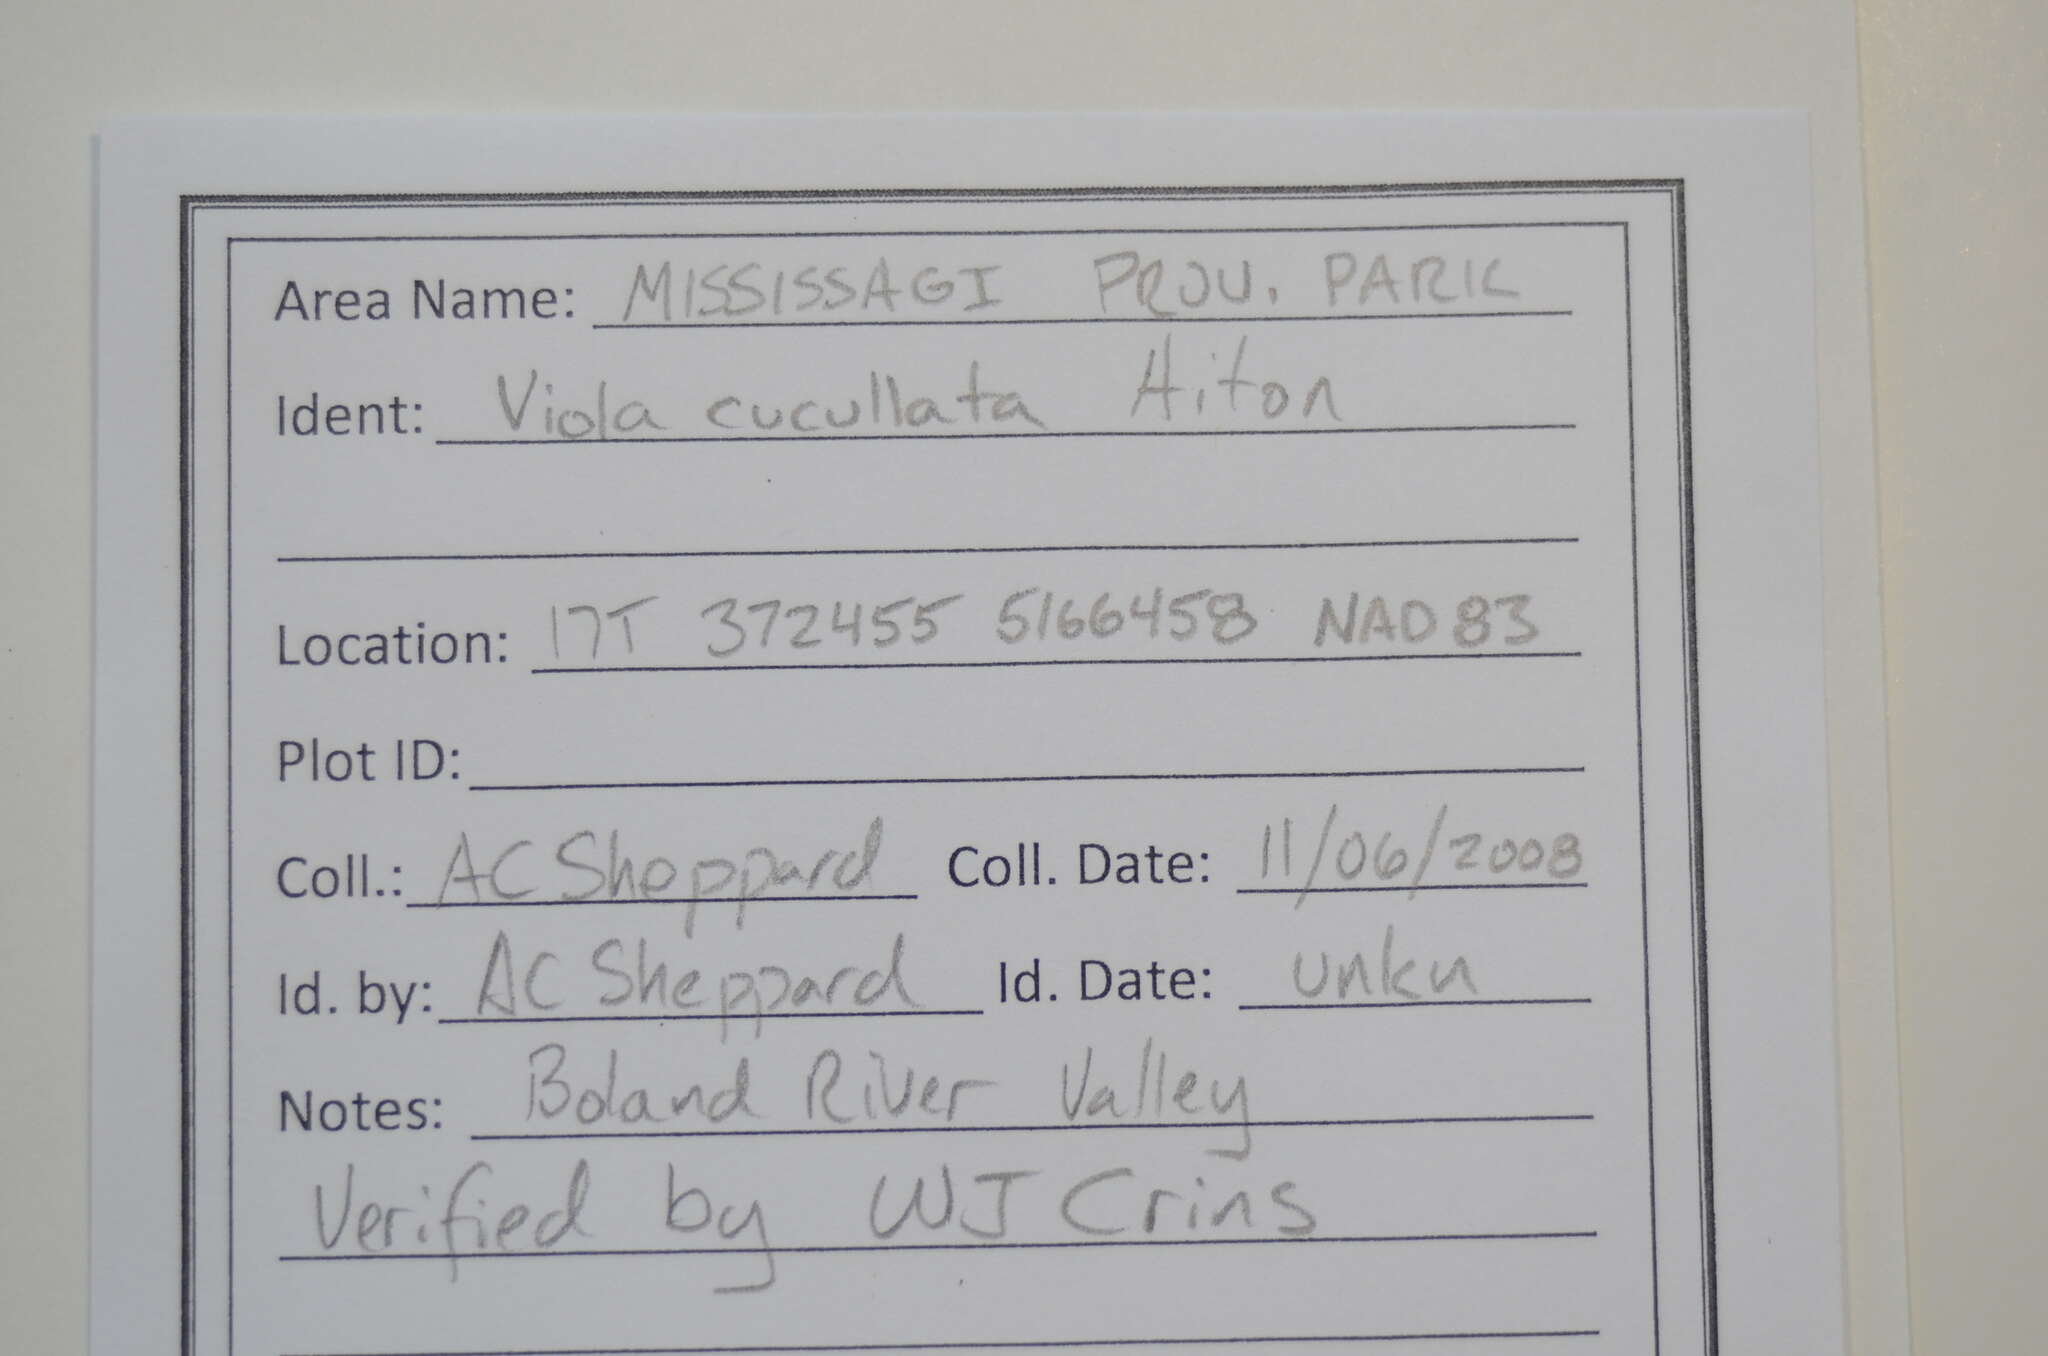 Area Name: MISSISSAGI PROV. PARK
Ident: Viola cucullata Aiton
Location: 17T 372455 5166458 NAD 83
Plot ID:
Coll.: AC Sheppard Coll. Date: 11/06/2008
Id. by: AC Sheppard Id. Date: unkn
Notes: Boland River Valley
Verified by WJ Crins